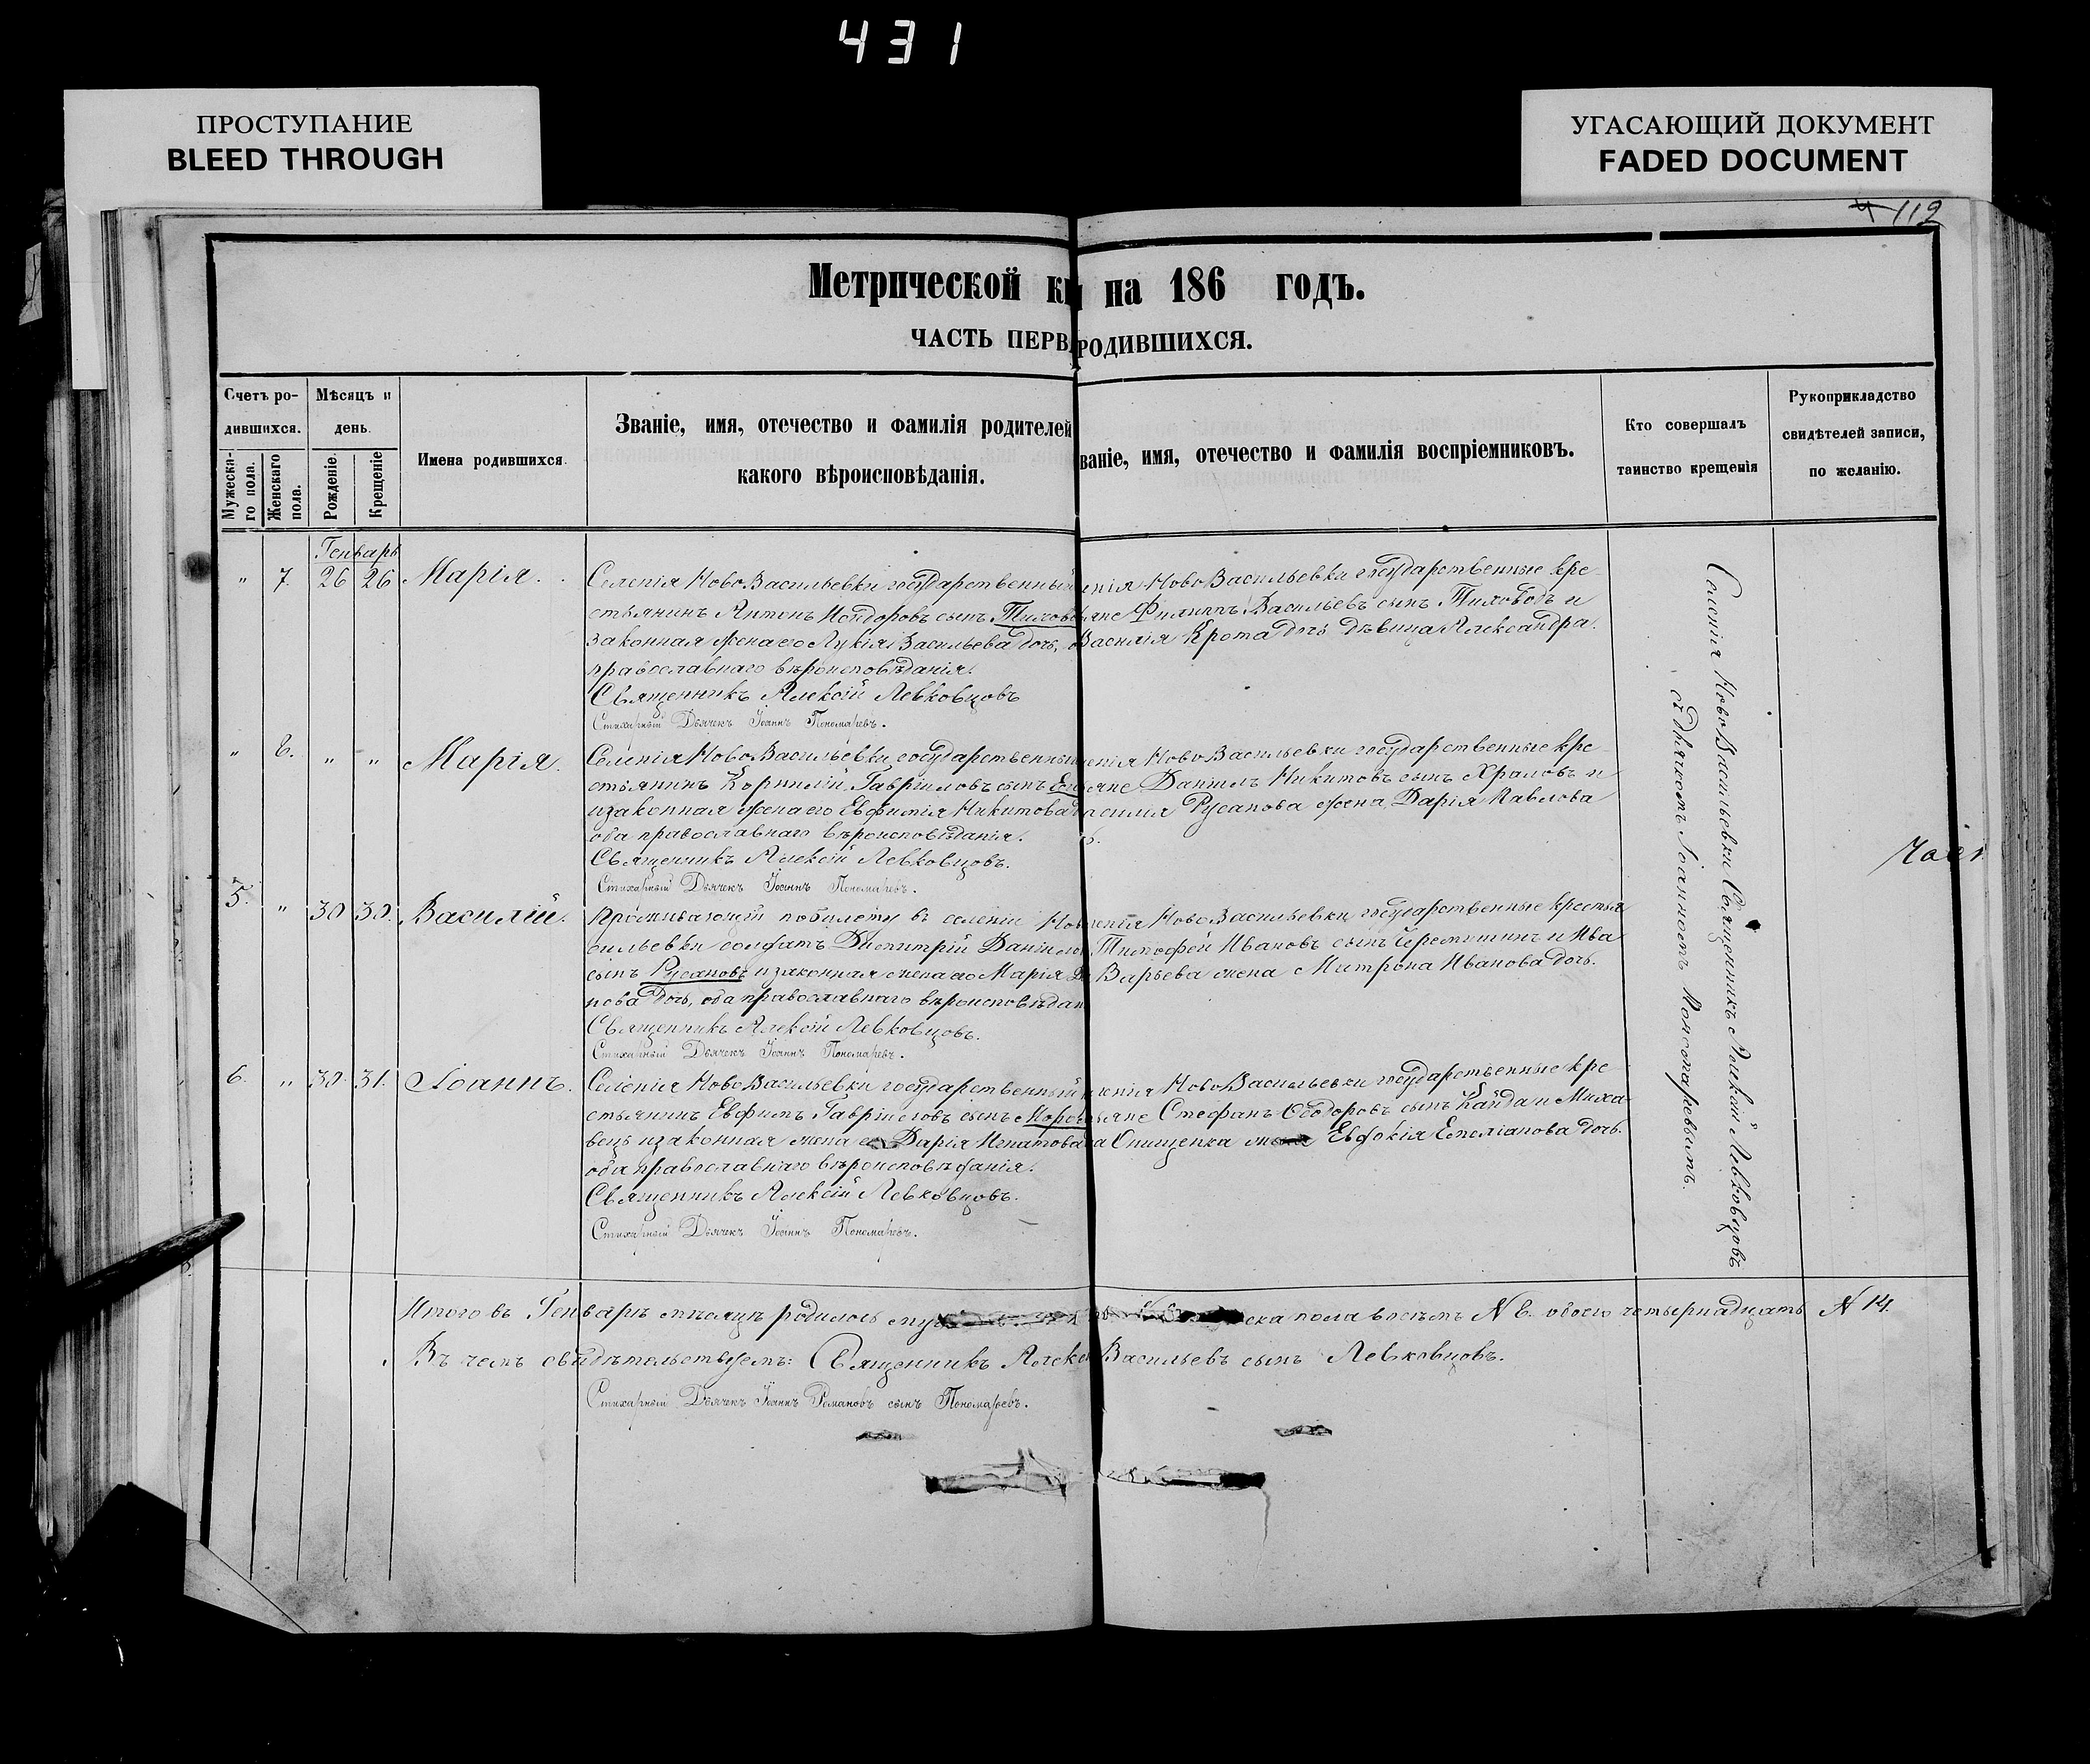 431
ПРОСТУПАНИЕ
BLEED THROUGH
УГАСАЮЩИЙ ДОКУМЕНТ
FADED DOCUMENT
112
Метрической кн на 186 годъ.
ЧАСТЬ ПЕРВ РОДИВШИХСЯ.
Счетъ ро-
дившихся.
Мужеска-
го пола.
Женскаго
пола.
Мѣсяцъ и
день.
Рожденіе.
Крещеніе
Имена родившихся.
Званіе, имя, отечество и фамилія родителей
какого вѣроисповѣданія.
ваніе, имя, отечество и фамилія воспріемниковъ.
Кто совершалъ
таинство крещенія
Рукоприкладство
свидѣтелей записи,
по желанію.
Генварь
" 7. 26 26 Марія.
Селенія НовоВасильевки государственный
стьянинъ Антонъ сынъ Тихово
законная жена его Лукія Васильева дочь,
православнаго вѣроисповѣданія.
Священникъ Алексій Левковцовъ
Стихарный Дьячекъ Іоаннъ Пономаревъ.
енія НовоВасильевки государственные кре-
яне Филиппъ Васильевъ сынъ Тиховодъ и
Василія Крота дочь дѣвица Александра.
" 8. " " Марія.
Селенія НовоВасильевки государственны
стьянинъ Корнилій Гавріиловъ сынъ
и законная жена его Евфимія Никитова
оба православнаго вѣроисповѣданія.
Священникъ Алексій Левковцовъ.
Стихарный Дьячекъ Іоаннъ Пономаревъ.
енія НовоВасильевки государственные кре-
яне Даніилъ Никитовъ сынъ Храмовъ и
Русанова жена Дарія Павлова
5. " 30 30. Василій.
Проживающій по билету въ селеніи Нов
сильевки солдатъ Димитрій Даніило
сынъ Русановъ и законная жена его Марія
нова дочь, оба православнаго вѣроисповѣдан
Священникъ Алексій Левковцовъ.
Стихарный Дьячекъ Іоаннъ Пономаревъ.
енія НовоВасильевки государственные крестья
Тимофей Ивановъ сынъ Черемишинъ и Ива
жена Матрона Иванова дочь.
6. " 30. 31. Іоаннъ.
Селенія НовоВасильевки государственный
стьянинъ Евфимъ Гавріиловъ сынъ Моро
вецъ и законная жена его Дарія Игнатова
оба православнаго вѣроисповѣданія.
Священникъ Алексій Левковцовъ.
Стихарный Дьячекъ Іоаннъ Пономаревъ.
енія НовоВасильевки государственные кре
яне Стефанъ Ѳеодоровъ сынъ Кайда и Миха
а Онищенка жена Евдокія Емеліанова дочь.
Селенія НовоВасильевки Священникъ Алексій Левковцовъ
съ Дьячкомъ Іоанномъ Пономаревымъ.
Итого въ Генварѣ мѣсяцѣ родилось му ска пола восемъ № 8. обоего четырнадцать № 14.
Въ чемъ свидѣтельствуемъ: Священникъ Алекс Васильевъ сынъ Левковцовъ.
Стихарный Дьячекъ Іоаннъ Романовъ сынъ Пономаревъ.